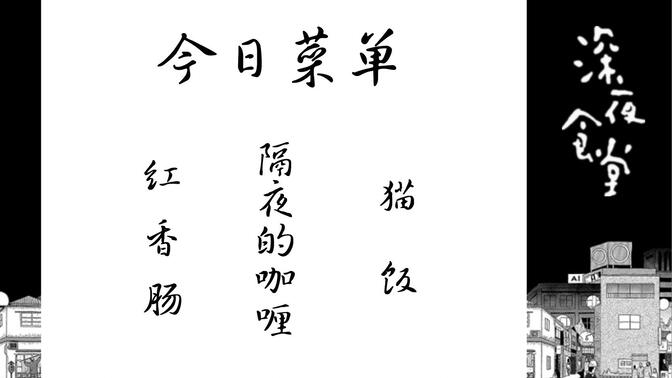 今日菜单
红香肠
隔夜的咖喱
猫饭
深夜食堂
AI